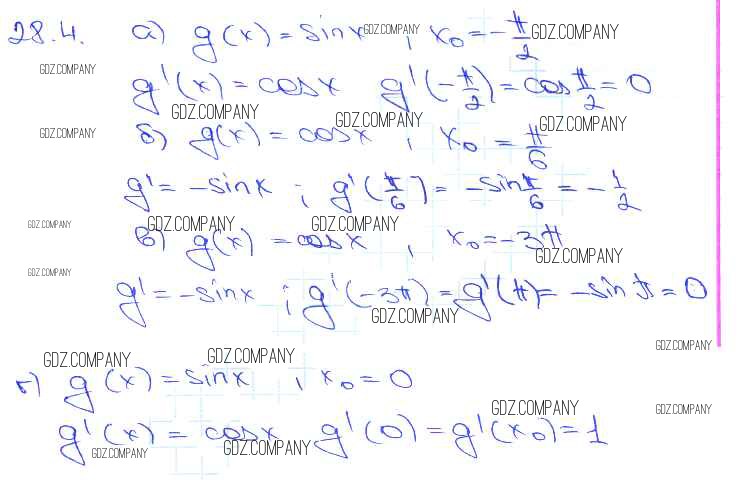 28.4. а) g(x) = sinx GDZ.COMPANY , x₀ = -π/2 GDZ.COMPANY
GDZ.COMPANY
g'(x) = cosx g'(-π/2) = cos π/2 = 0
GDZ.COMPANY GDZ.COMPANY
GDZ.COMPANY б) g(x) = cosx , x₀ = π/6 GDZ.COMPANY
g' = -sinx ; g'(π/6) = -sin π/6 = -1/2
GDZ.COMPANY GDZ.COMPANY GDZ.COMPANY
в) g(x) = cosx , x₀ = -3π
GDZ.COMPANY
GDZ.COMPANY
g' = -sinx ; g'(-3π) = g'(π) = -sin π = 0
GDZ.COMPANY
GDZ.COMPANY
GDZ.COMPANY GDZ.COMPANY
г) g(x) = sinx , x₀ = 0
GDZ.COMPANY GDZ.COMPANY
g'(x) = cosx g'(0) = g'(x₀) = 1
GDZ.COMPANY GDZ.COMPANY